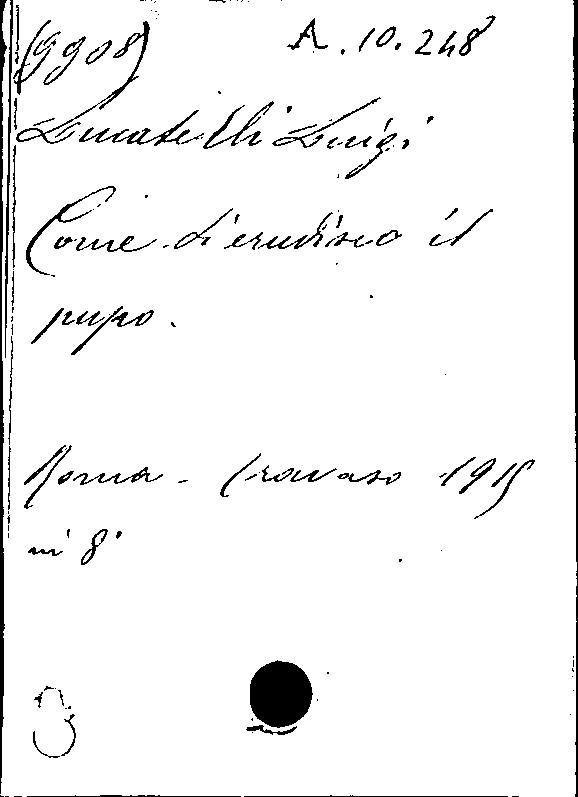 (9908) A.10.248
Lucatelli Luigi
Come ti erudisco il
pupo.
Roma - Travaso 1915
in 8°